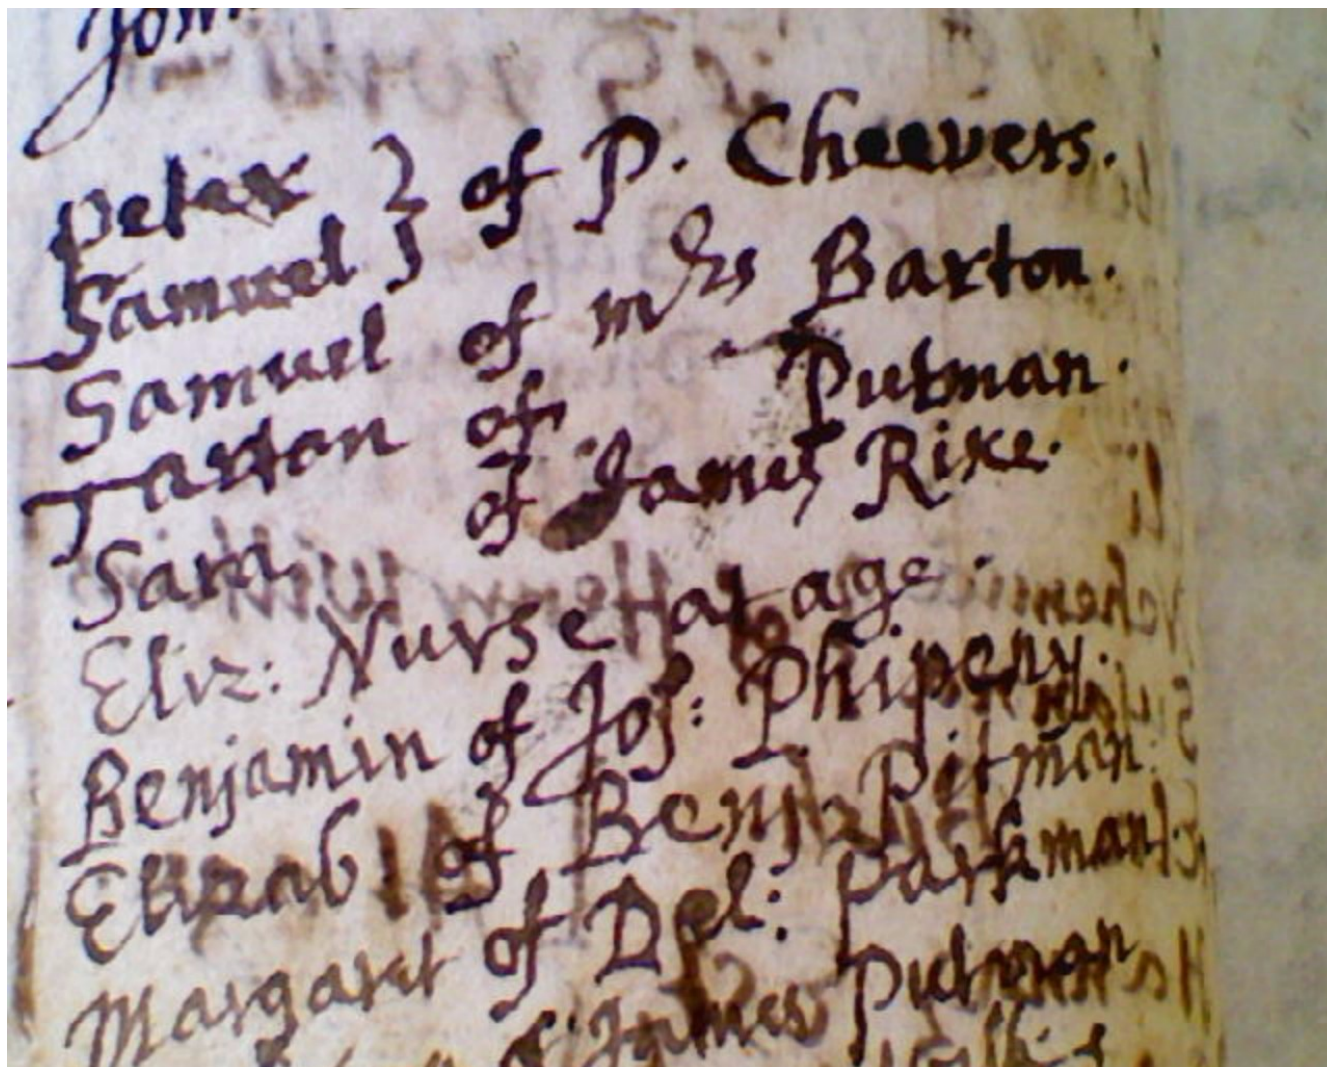 John
Peter } of P. Cheevers.
Samuel }
Samuel of mrs Barton.
Tarton of Putman.
Sara of James Rixe.
Eliz: Nurse at age.
Benjamin of Jos: Phipeny.
Elizab of Benj: Pitman.
Margaret of Del: Parkman.
of James Putman